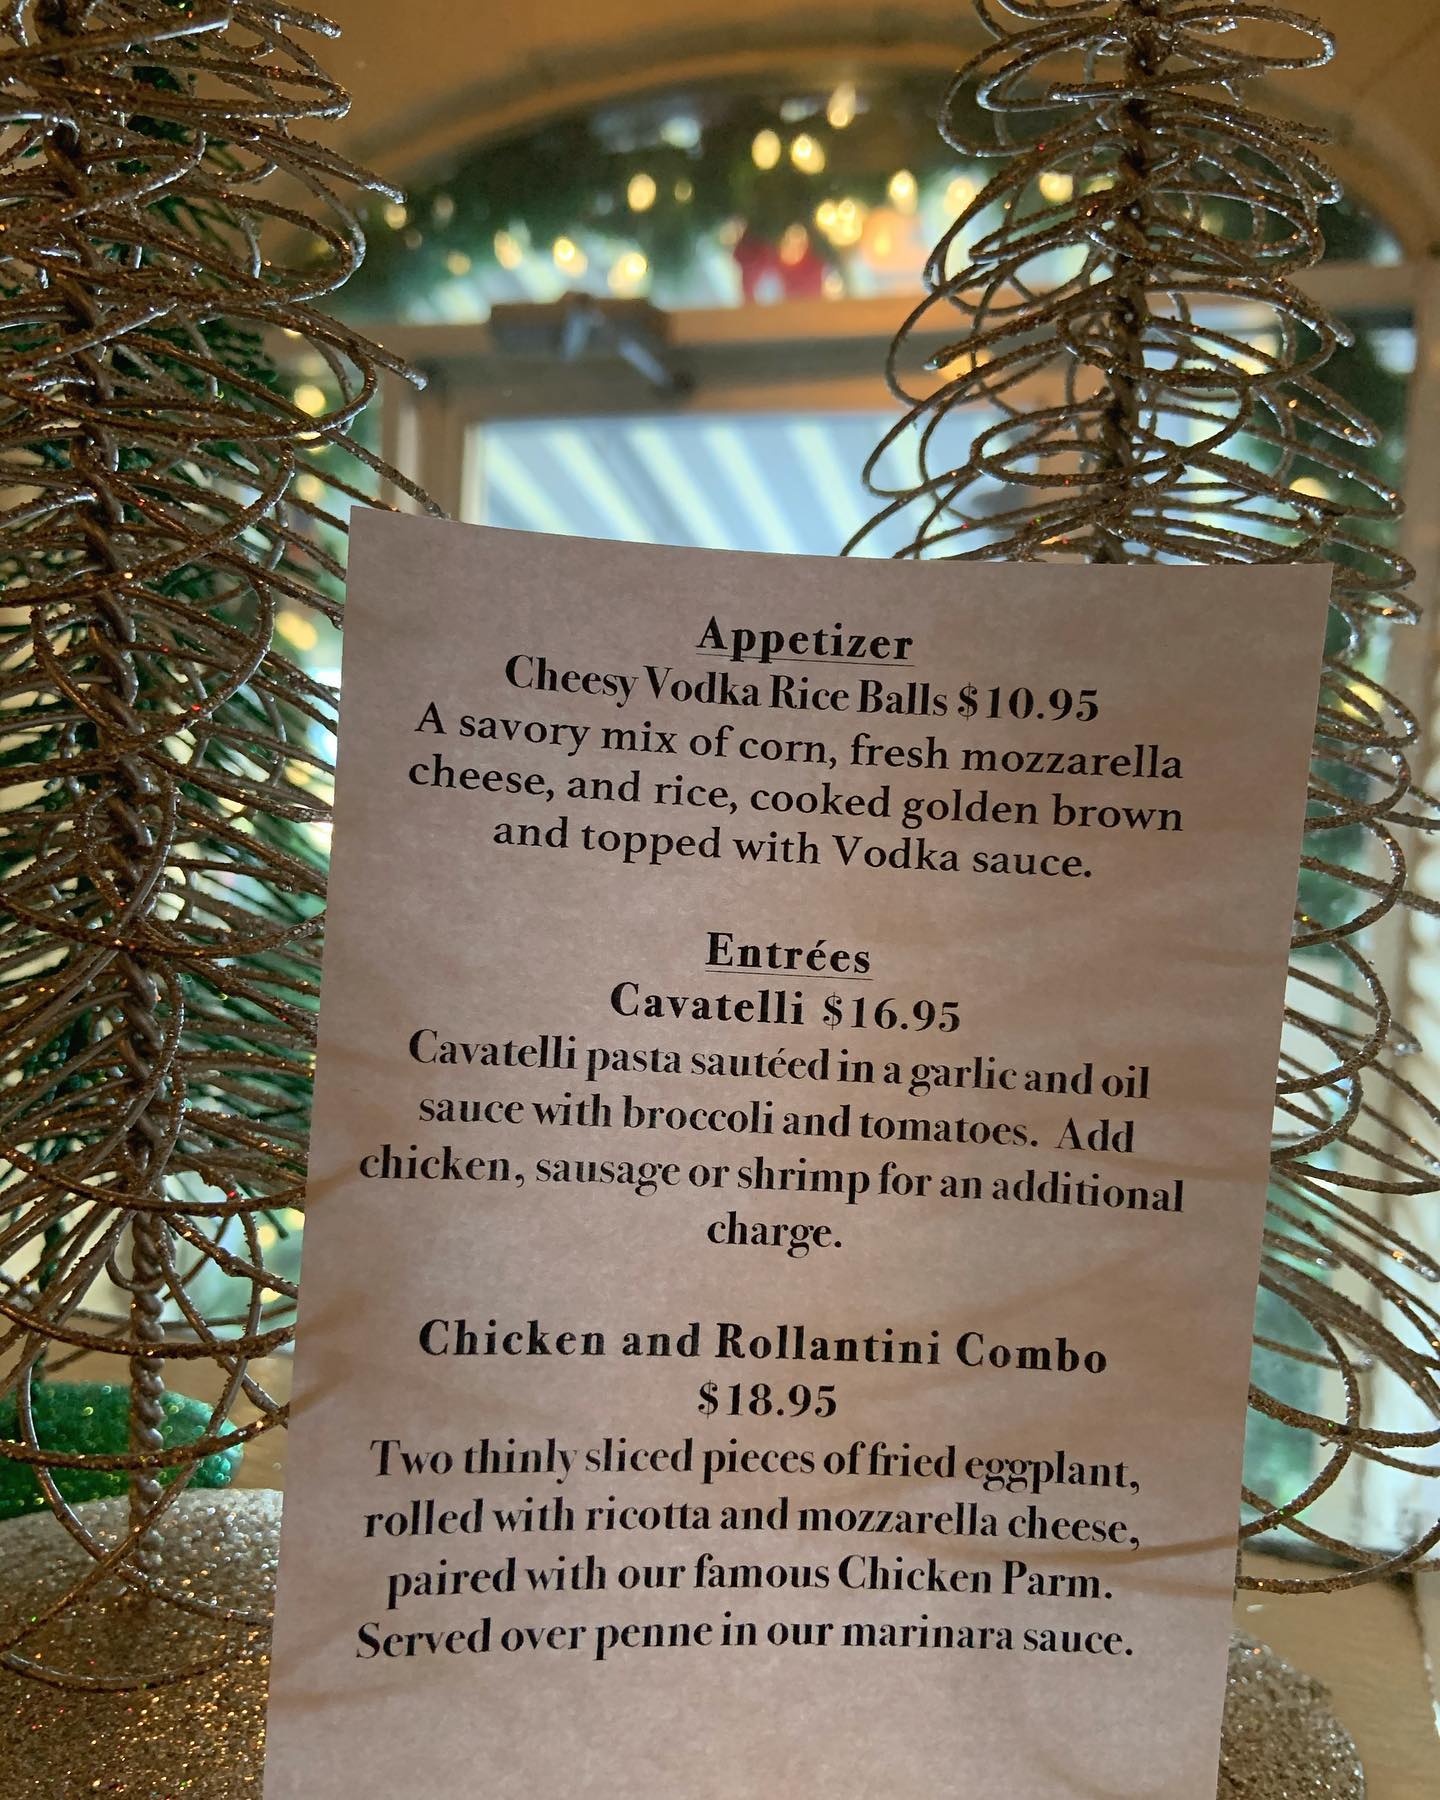 Appetizer
Cheesy Vodka Rice Balls $10.95
A savory mix of corn, fresh mozzarella
cheese, and rice, cooked golden brown
and topped with Vodka sauce.
Entrées
Cavatelli $16.95
Cavatelli pasta sautéed in a garlic and oil
sauce with broccoli and tomatoes. Add
chicken, sausage or shrimp for an additional
charge.
Chicken and Rollantini Combo
$18.95
Two thinly sliced pieces of fried eggplant,
rolled with ricotta and mozzarella cheese,
paired with our famous Chicken Parm.
Served over penne in our marinara sauce.